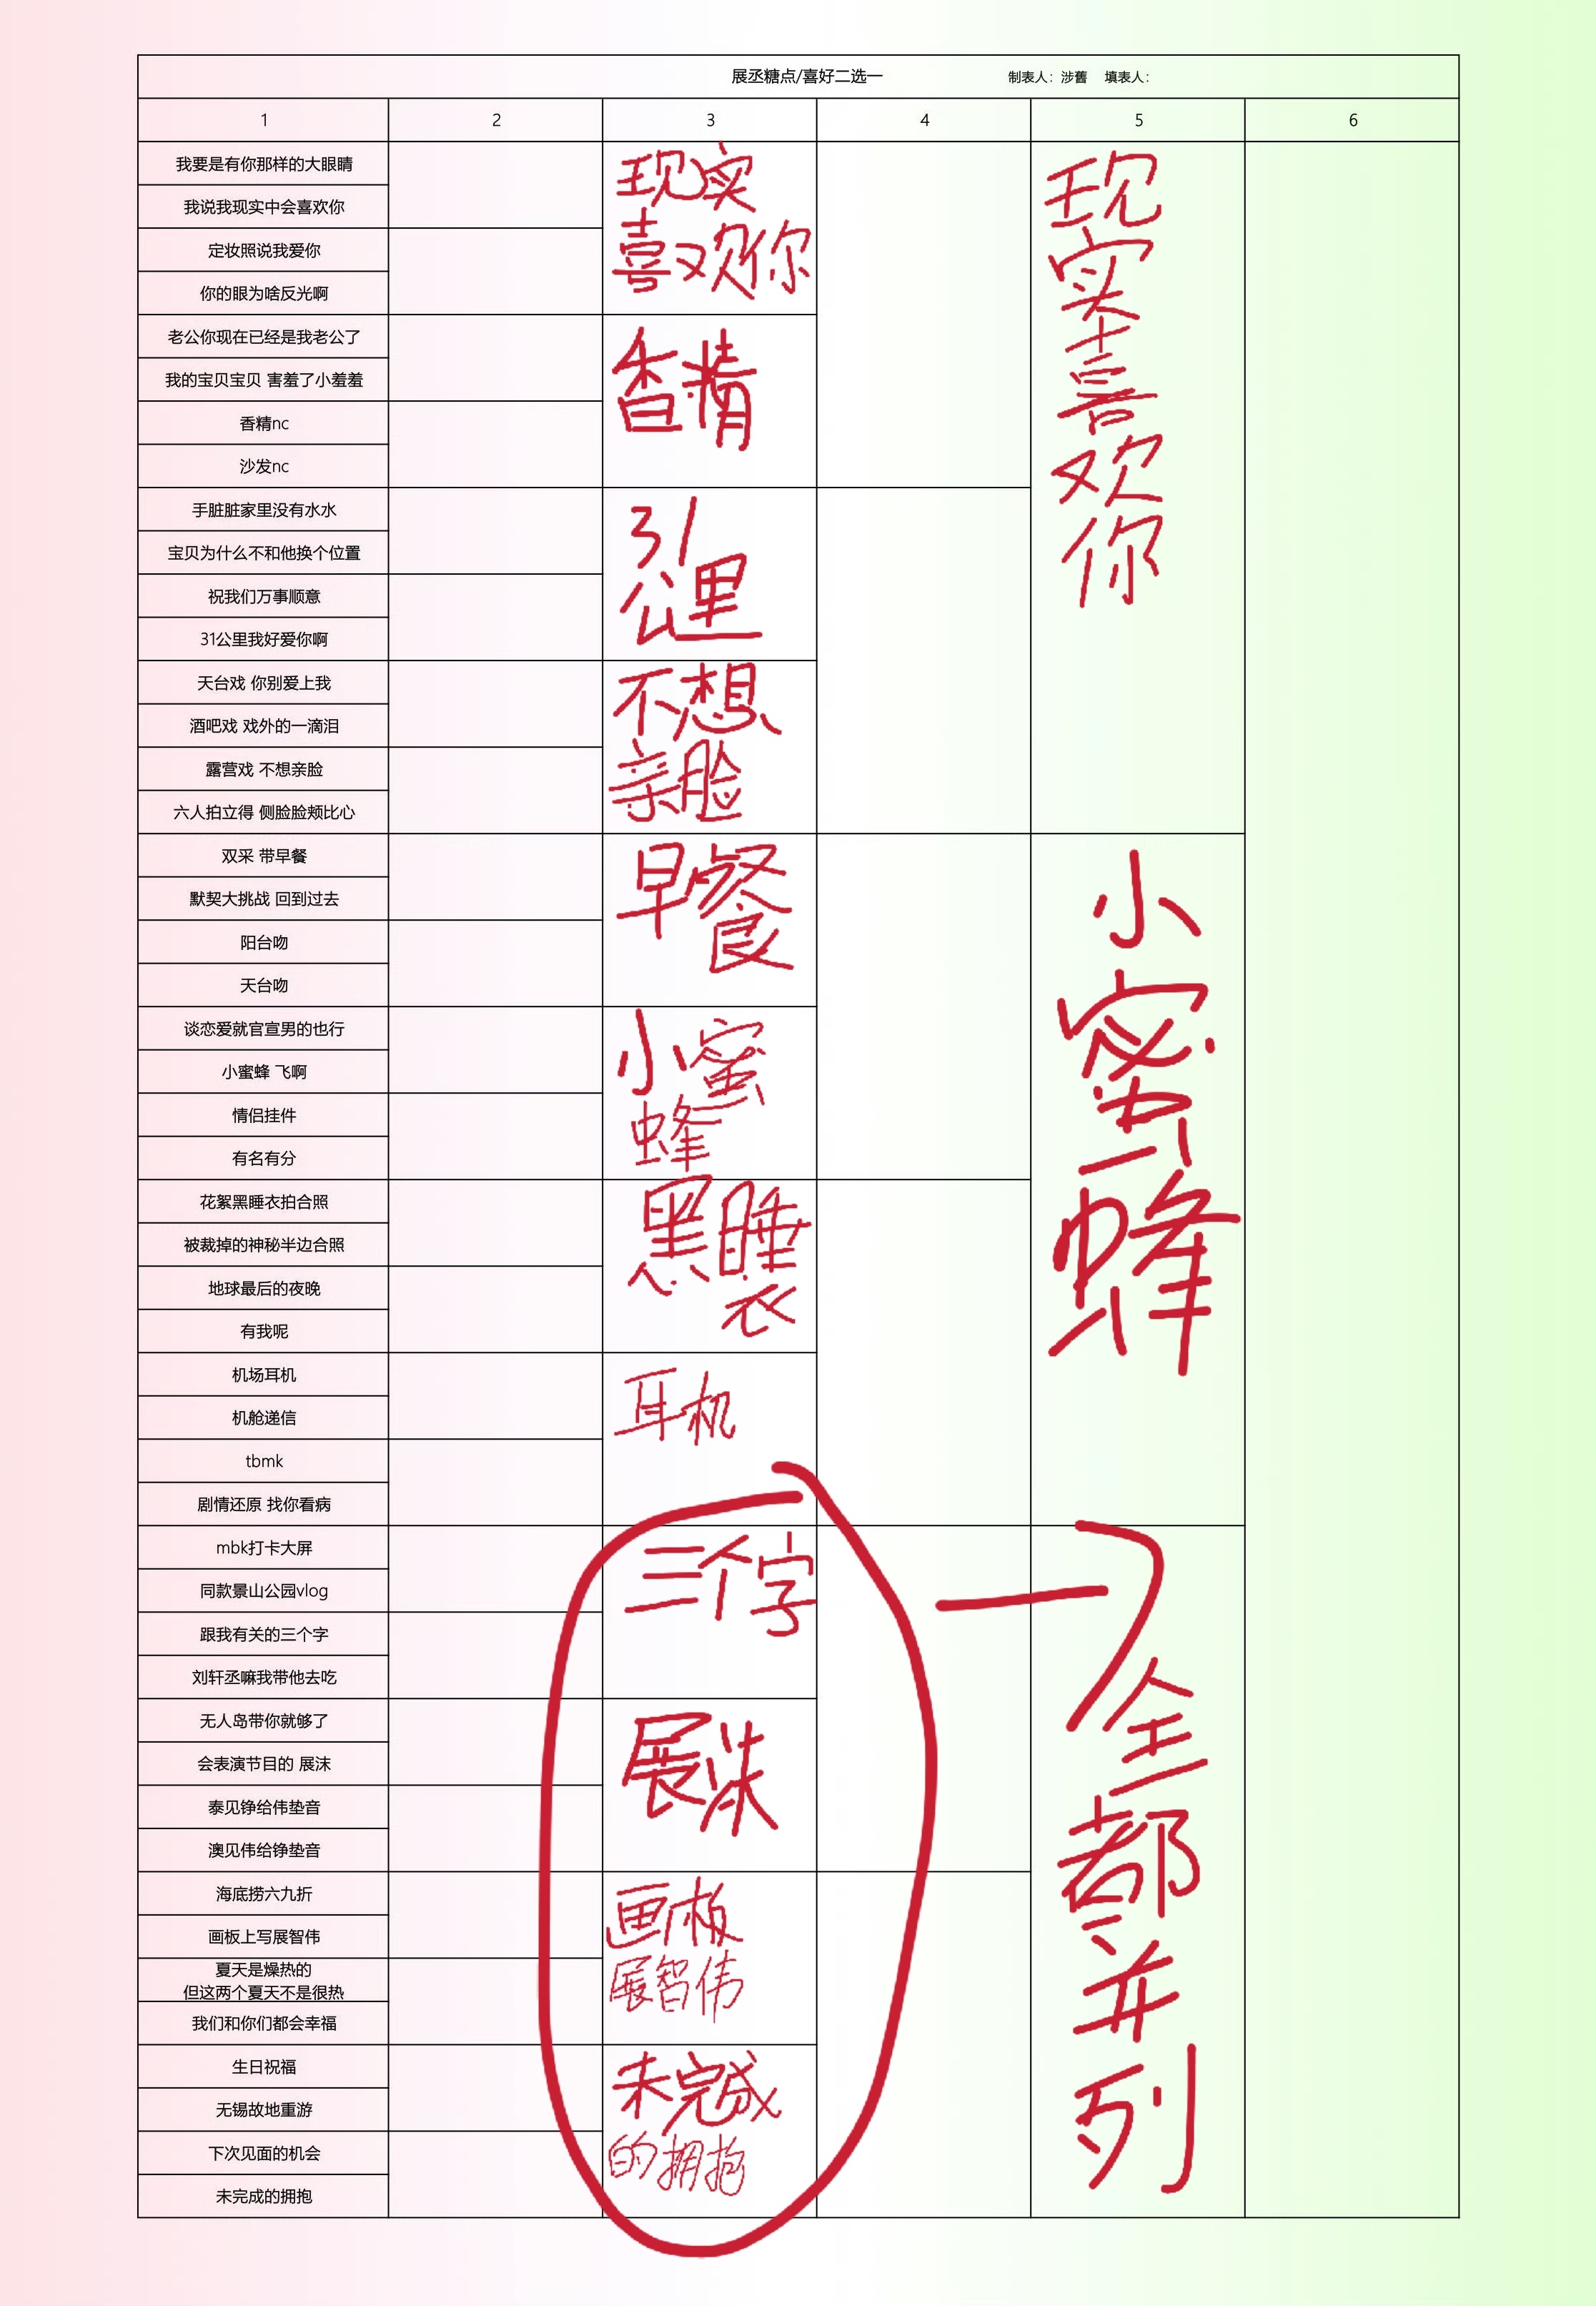 展丞糖点/喜好二选一 制表人：涉舊 填表人：
1 2 3 4 5 6
我要是有你那样的大眼睛
我说我现实中会喜欢你
定妆照说我爱你
你的眼为啥反光啊
老公你现在已经是我老公了
我的宝贝宝贝 害羞了小羞羞
香精nc
沙发nc
手脏脏家里没有水水
宝贝为什么不和他换个位置
祝我们万事顺意
31公里我好爱你啊
天台戏 你别爱上我
酒吧戏 戏外的一滴泪
露营戏 不想亲脸
六人拍立得 侧脸脸颊比心
双采 带早餐
默契大挑战 回到过去
阳台吻
天台吻
谈恋爱就官宣男的也行
小蜜蜂 飞啊
情侣挂件
有名有分
花絮黑睡衣拍合照
被裁掉的神秘半边合照
地球最后的夜晚
有我呢
机场耳机
机舱递信
tbmk
剧情还原 找你看病
mbk打卡大屏
同款景山公园vlog
跟我有关的三个字
刘轩丞嘛我带他去吃
无人岛带你就够了
会表演节目的 展沫
泰见铮给伟垫音
澳见伟给铮垫音
海底捞六九折
画板上写展智伟
夏天是燥热的
但这两个夏天不是很热
我们和你们都会幸福
生日祝福
无锡故地重游
下次见面的机会
未完成的拥抱
现实
喜欢你
香精
31
公里
不想
亲脸
早餐
小蜜
蜂
黑睡
衣
耳机
三个字
展沫
画板
展智伟
未完成
的拥抱
现实喜欢你
小蜜蜂
全都并列